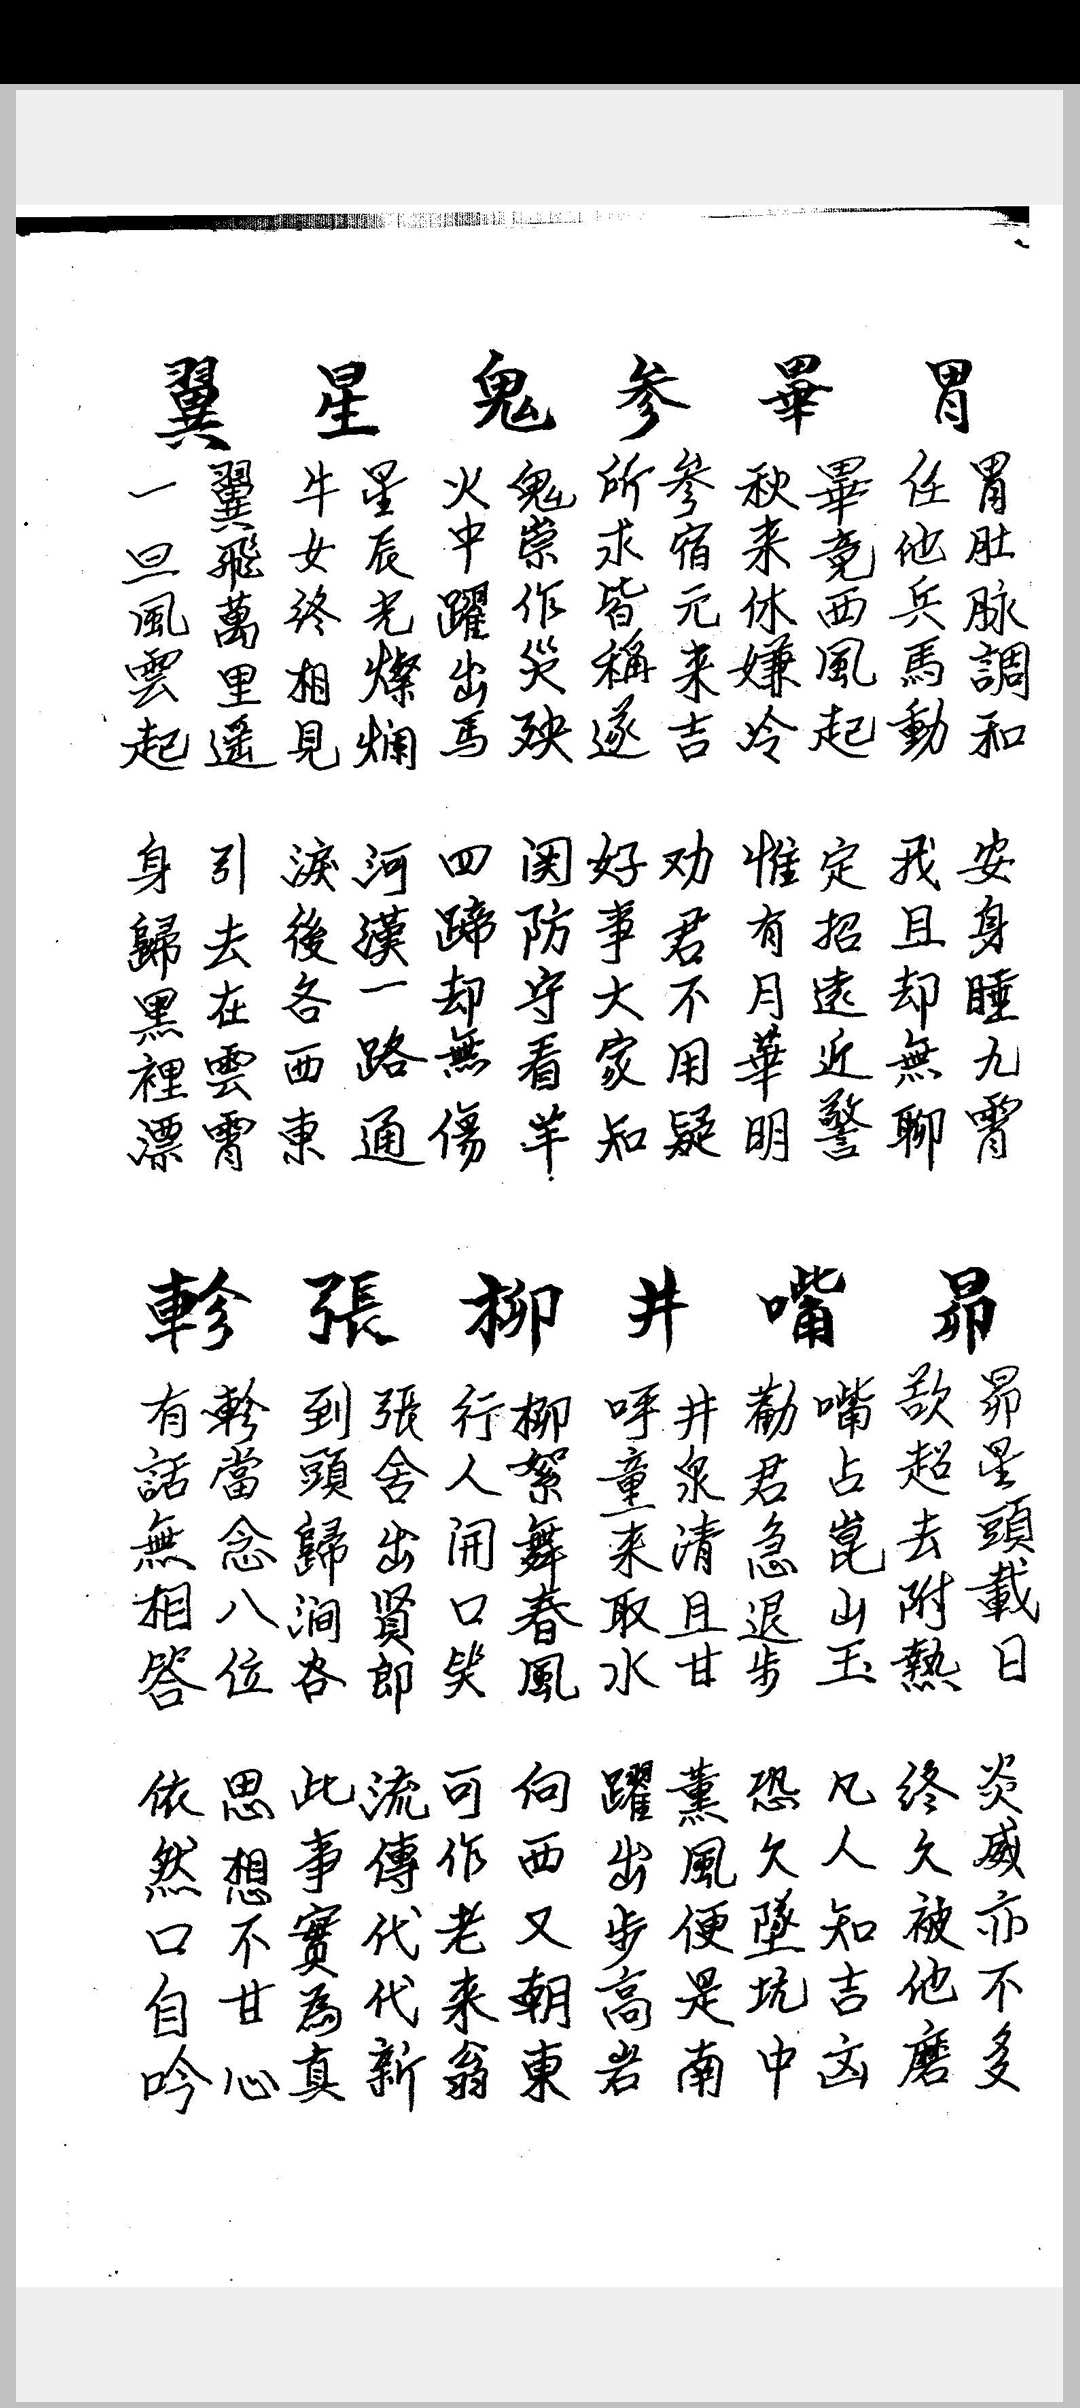 胃
胃肚脉調和　安身睡九霄
任他兵馬動　我且却無聊
畢
畢竟西風起　定招遠近警
秋来休嫌冷　惟有月華明
参
參宿元来吉　劝君不用疑
所求皆稱遂　好事大家知
鬼
鬼祟作災殃　関防守看羊
火中躍出馬　四蹄却無傷
星
星辰光燦爛　河漢一路通
牛女終相見　淚後各西東
翼
翼飛萬里遥　引去在雲霄
一旦風雲起　身歸黑裡漂
昴
昴星頭載日　炎威亦不多
歘超去附熱　終久被他磨
嘴
嘴占崑山玉　凡人知吉凶
勸君急退步　恐久墜坑中
井
井泉清且甘　薰風便是南
呼童来取水　躍出步高岩
柳
柳絮舞春風　向西又朝東
行人開口笑　可作老来翁
張
張舍出賢郎　流傳代代新
到頭歸澗谷　此事實為真
軫
軫當念八位　思想不甘心
有話無相答　依然口自吟